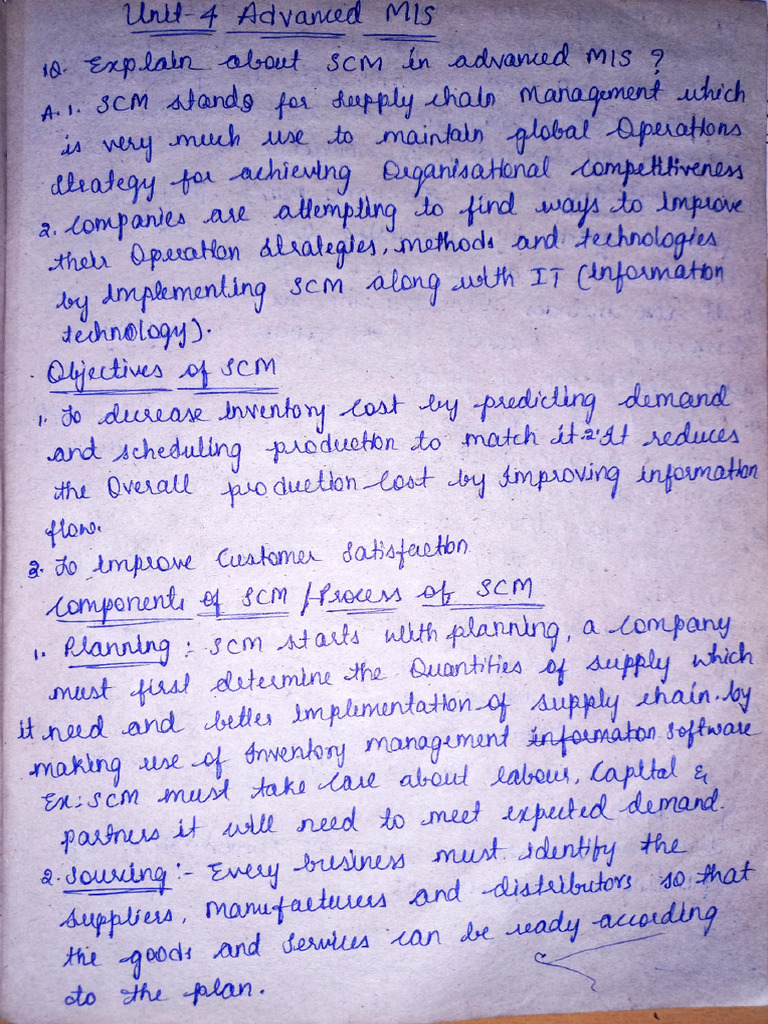 Unit-4 Advanced MIS
1Q. Explain about SCM in advanced MIS ?
A. 1. SCM stands for supply chain Management which
is very much use to maintain global Operations
strategy for achieving Organisational competitiveness
2. Companies are attempting to find ways to improve
their Operation strategies, methods and technologies
by implementing SCM along with IT (information
technology).
Objectives of SCM
1. To decrease inventory cost by predicting demand
and scheduling production to match it. 2. It reduces
the Overall production cost by improving information
flow.
3. To improve Customer Satisfaction
Components of SCM / Process of SCM
1. Planning : SCM starts with planning, a company
must first determine the Quantities of supply which
it need and better implementation of supply chain. by
making use of Inventory management informaton software
Ex: SCM must take care about labour, Capital &
partners it will need to meet expected demand.
2. Sourcing :- Every business must identify the
suppliers, manufacturers and distributors so that
the goods and services can be ready according
to the plan.